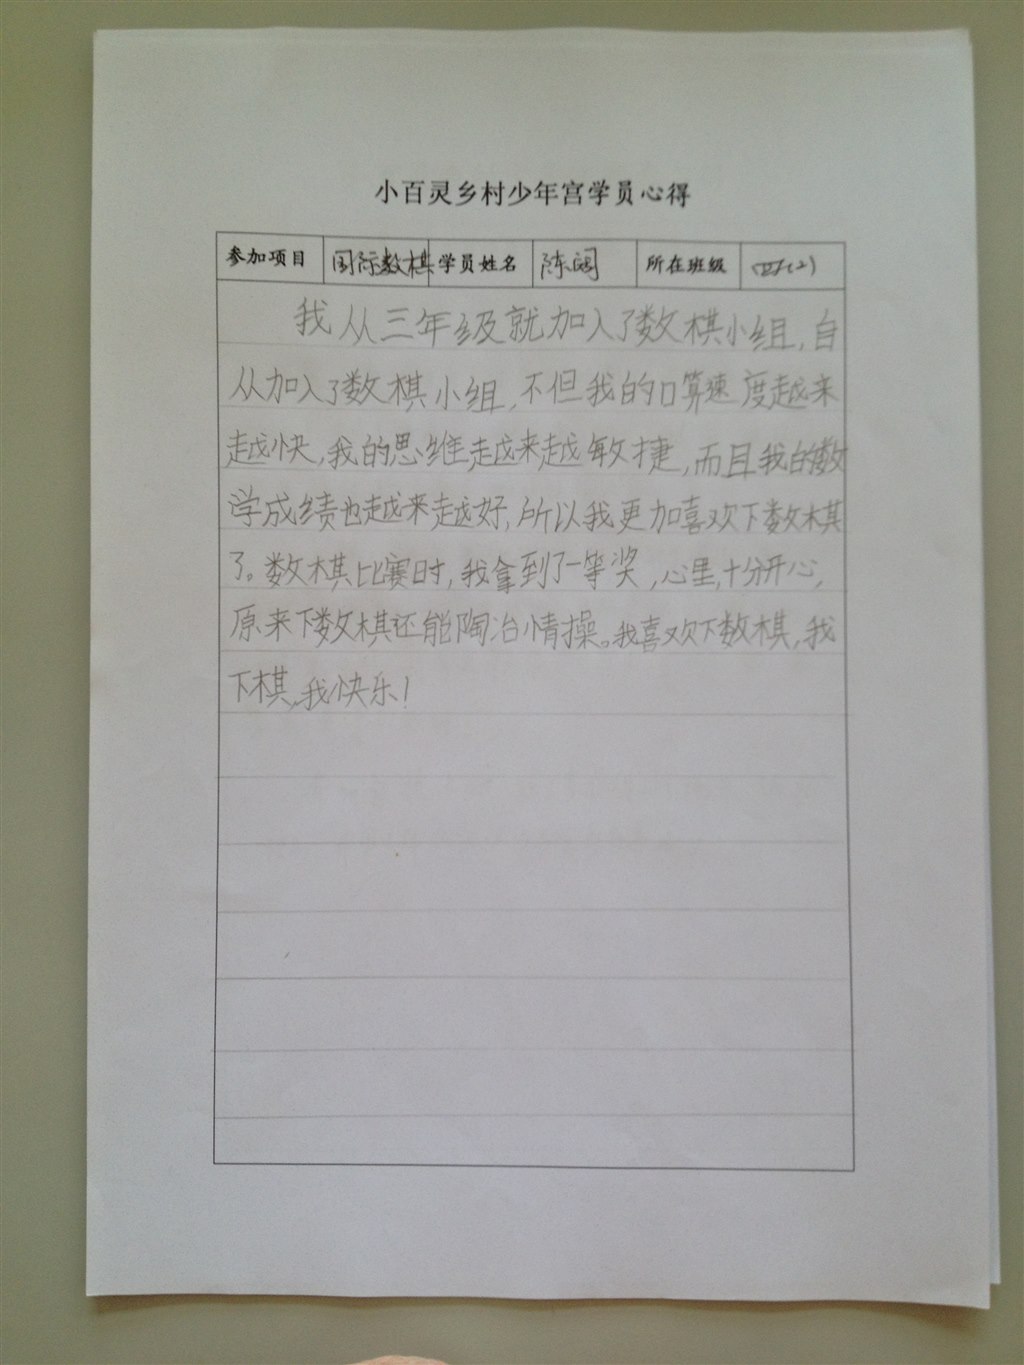 小百灵乡村少年宫学员心得
参加项目 国际数棋 学员姓名 陈阔 所在班级 四(2)
我从三年级就加入了数棋小组,自
从加入了数棋小组,不但我的口算速度越来
越快,我的思维越来越敏捷,而且我的数
学成绩也越来越好,所以我更加喜欢下数棋
了。数棋比赛时,我拿到了一等奖,心里,十分开心,
原来下数棋还能陶冶情操。我喜欢下数棋,我
下棋,我快乐!